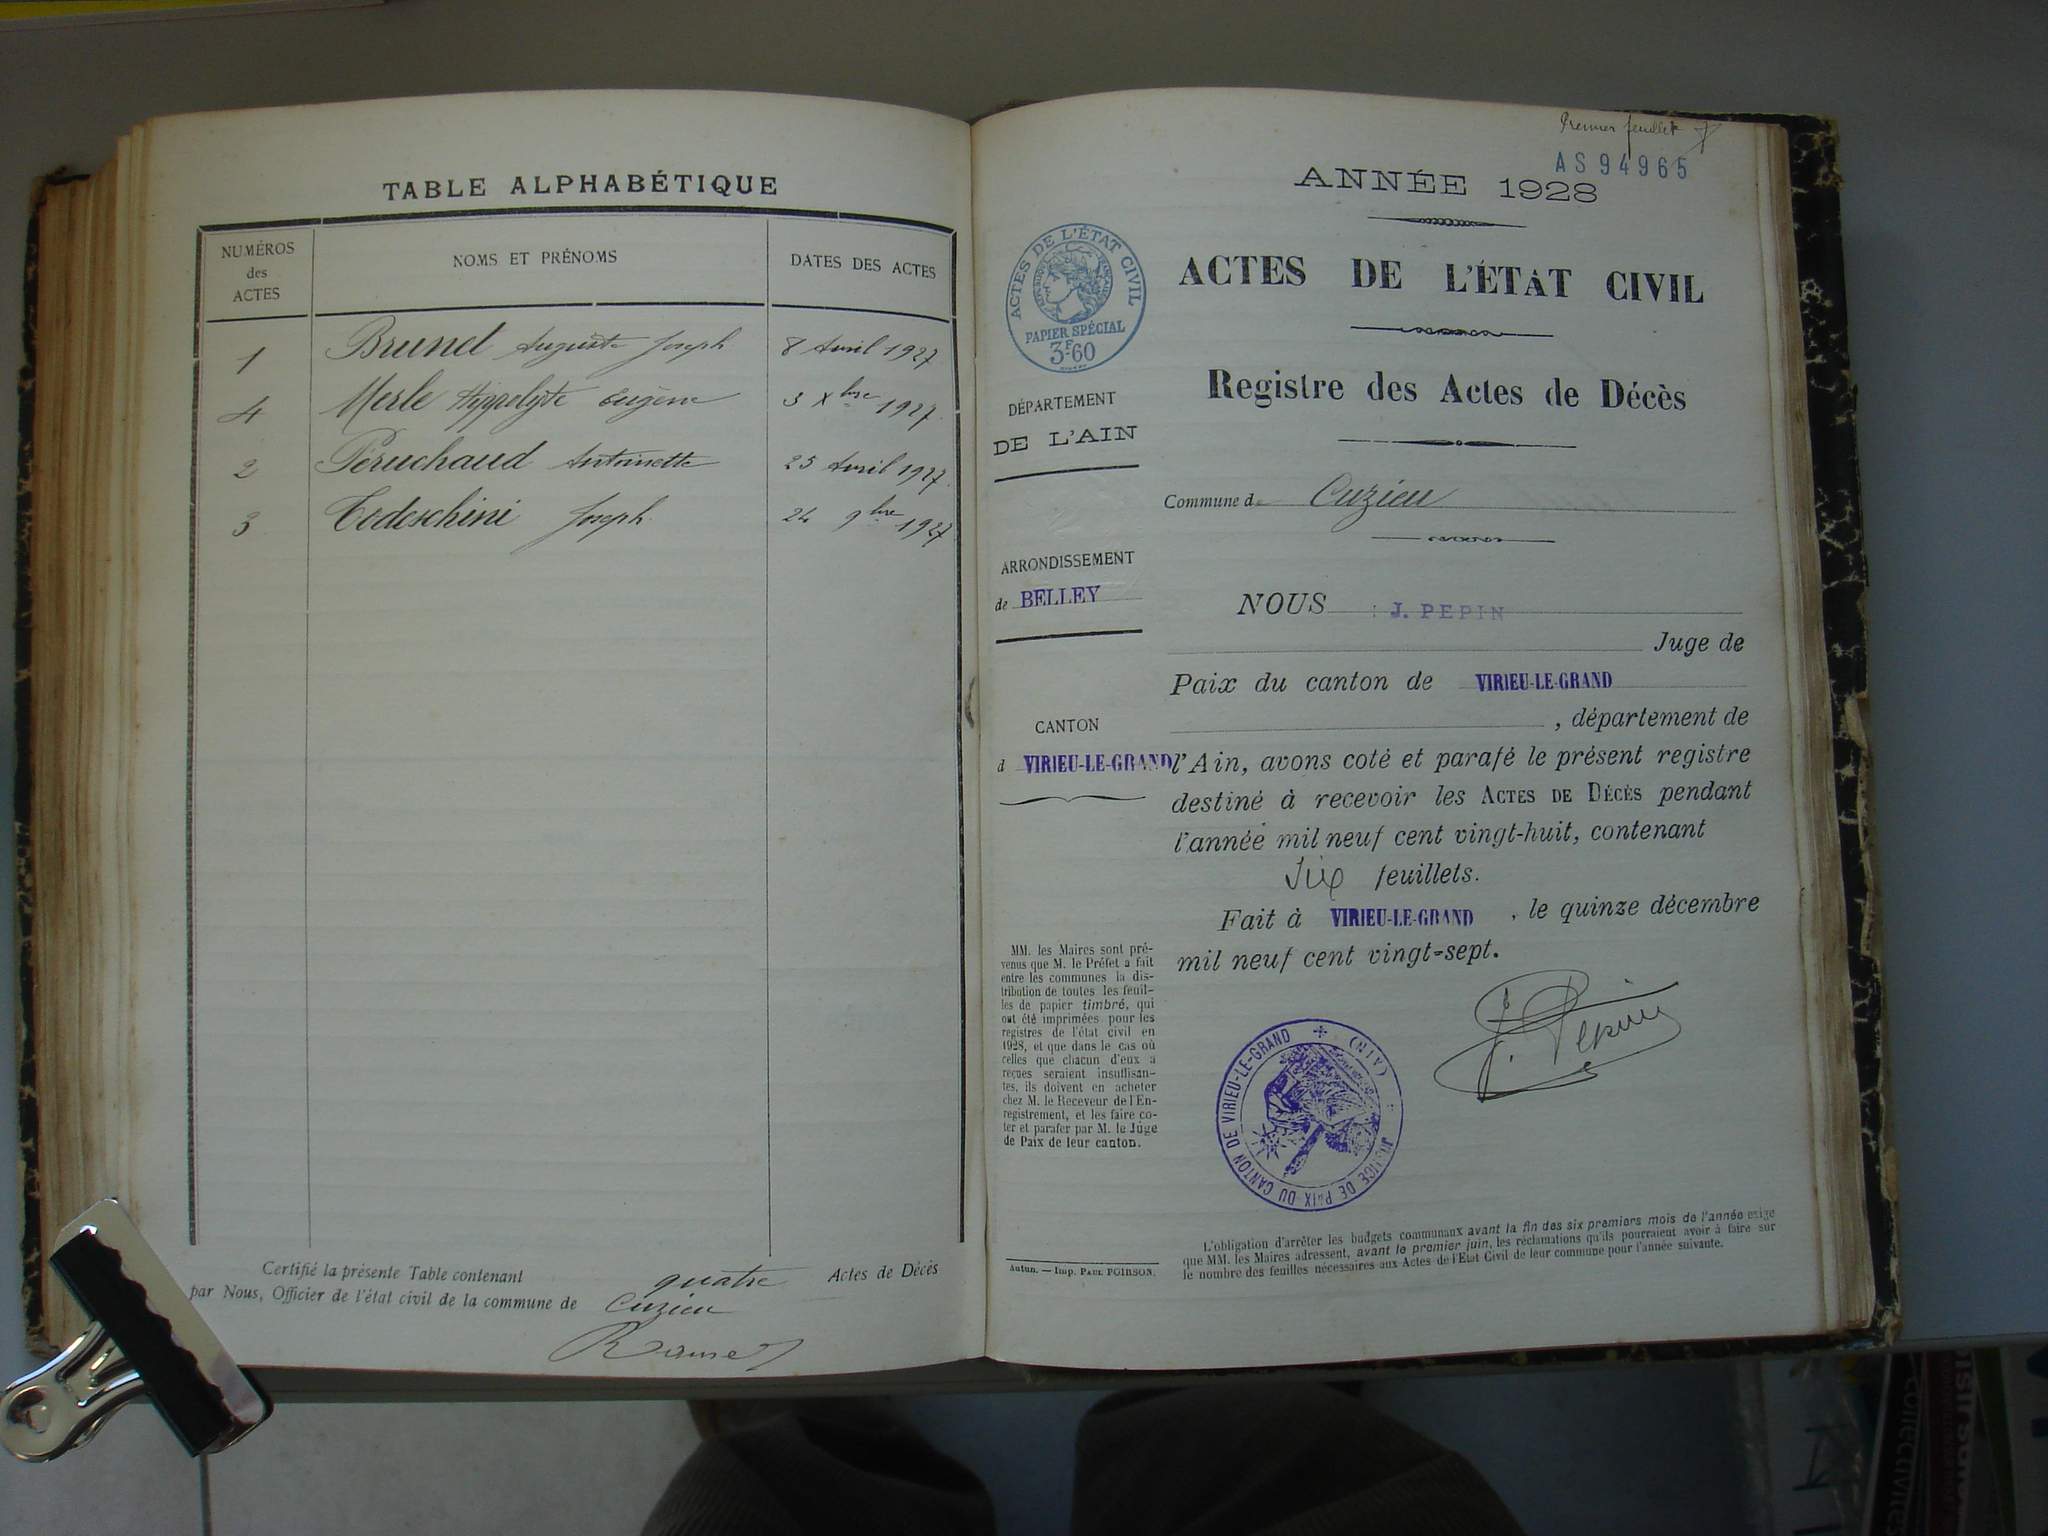 TABLE ALPHABÉTIQUE
NUMÉROS
des
ACTES
NOMS ET PRÉNOMS
DATES DES ACTES
1 Brunet Auguste Joseph 8 Avril 1927
4 Merle Hippolyte Eugène 3 Xbre 1927
2 Péruchaud Antoinette 25 Avril 1927
3 Todeschini Joseph 24 9bre 1927
Certifié la présente Table contenant quatre Actes de Décès
par Nous, Officier de l'état civil de la commune de Cuzieu
Premier feuillet
AS94965
ANNÉE 1928
ACTES DE L'ÉTAT CIVIL
PAPIER SPÉCIAL
3F60
ACTES DE L'ÉTAT CIVIL
Registre des Actes de Décès
DÉPARTEMENT
DE L'AIN
Commune de Cuzieu
ARRONDISSEMENT
de BELLEY
NOUS J. PEPIN
Juge de
Paix du canton de VIRIEU-LE-GRAND
, département de
CANTON
d VIRIEU-LE-GRAND
l'Ain, avons coté et parafé le présent registre
destiné à recevoir les ACTES DE DÉCÈS pendant
l'année mil neuf cent vingt-huit, contenant
Six feuillets.
Fait à VIRIEU-LE-GRAND, le quinze décembre
mil neuf cent vingt-sept.
J. Pepin
JUSTICE DE PAIX DU CANTON DE VIRIEU-LE-GRAND (AIN)
MM. les Maires sont pré-
venus que M. le Préfet a fait
entre les communes la dis-
tribution de toutes les feuil-
les de papier timbré, qui
ont été imprimées pour les
registres de l'état civil en
1928, et que dans le cas où
celles que chacun d'eux a
reçues seraient insuffisan-
tes, ils doivent en acheter
chez M. le Receveur de l'En-
registrement, et les faire co-
ter et parafer par M. le Juge
de Paix de leur canton.
Autun. — Imp. PAUL POIRSON.
L'obligation d'arrêter les budgets communaux avant la fin des six premiers mois de l'année exige
que MM. les Maires adressent, avant le premier juin, les réclamations qu'ils pourraient avoir à faire sur
le nombre des feuilles nécessaires aux Actes de l'État Civil de leur commune pour l'année suivante.